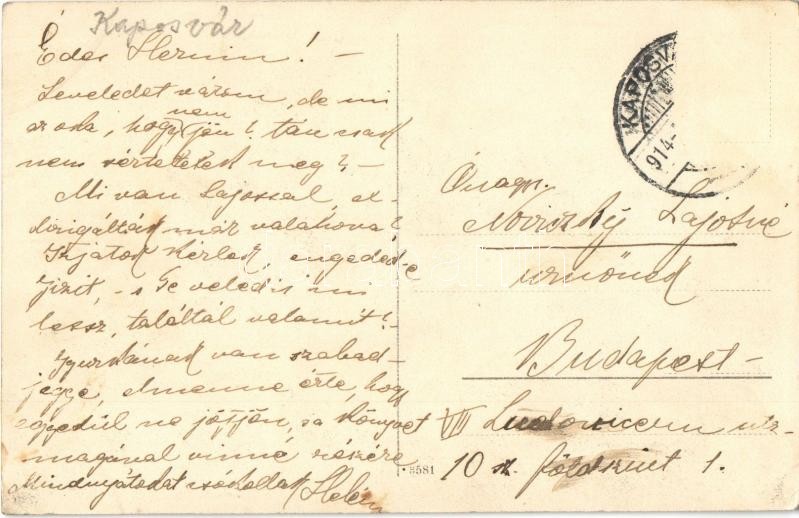 Kaposvár
Édes Hermin! –
Leveledet várom, de mi
az oka, hogy nem jön? tán csak
nem sértetelek meg? –
Mi van Lajossal, ex-
dirigálták már valahova?
Írjatok kérlek, engeded-e
Jizit, – s Te veled is mi
lessz, találtál valamit? –
Gyurkának van szabad-
jegye, elmenne érte, hogy
egyedül ne jöjjön, s a könyvet
magával vinné részére
Mindnyátodat csókollak Helén
KAPOSV
914
Őnagy.
Lajosné
urnőnek
Budapest –
VIII Ludoviceum utz-
10 sz. földszint 1.
5581